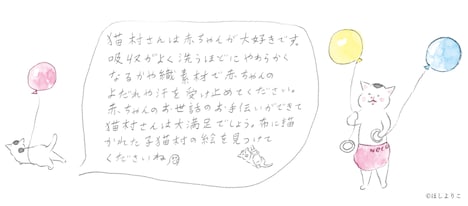 猫村さんは赤ちゃんが大好きです。
吸収がよく洗うほどにやわらかく
なるかや織素材で赤ちゃんの
よだれや汗を受け止めてください。
赤ちゃんのお世話のお手伝いができて
猫村さんは大満足でしょう。布に描
かれた子猫村の絵を見つけて
くださいね
©ほしよりこ